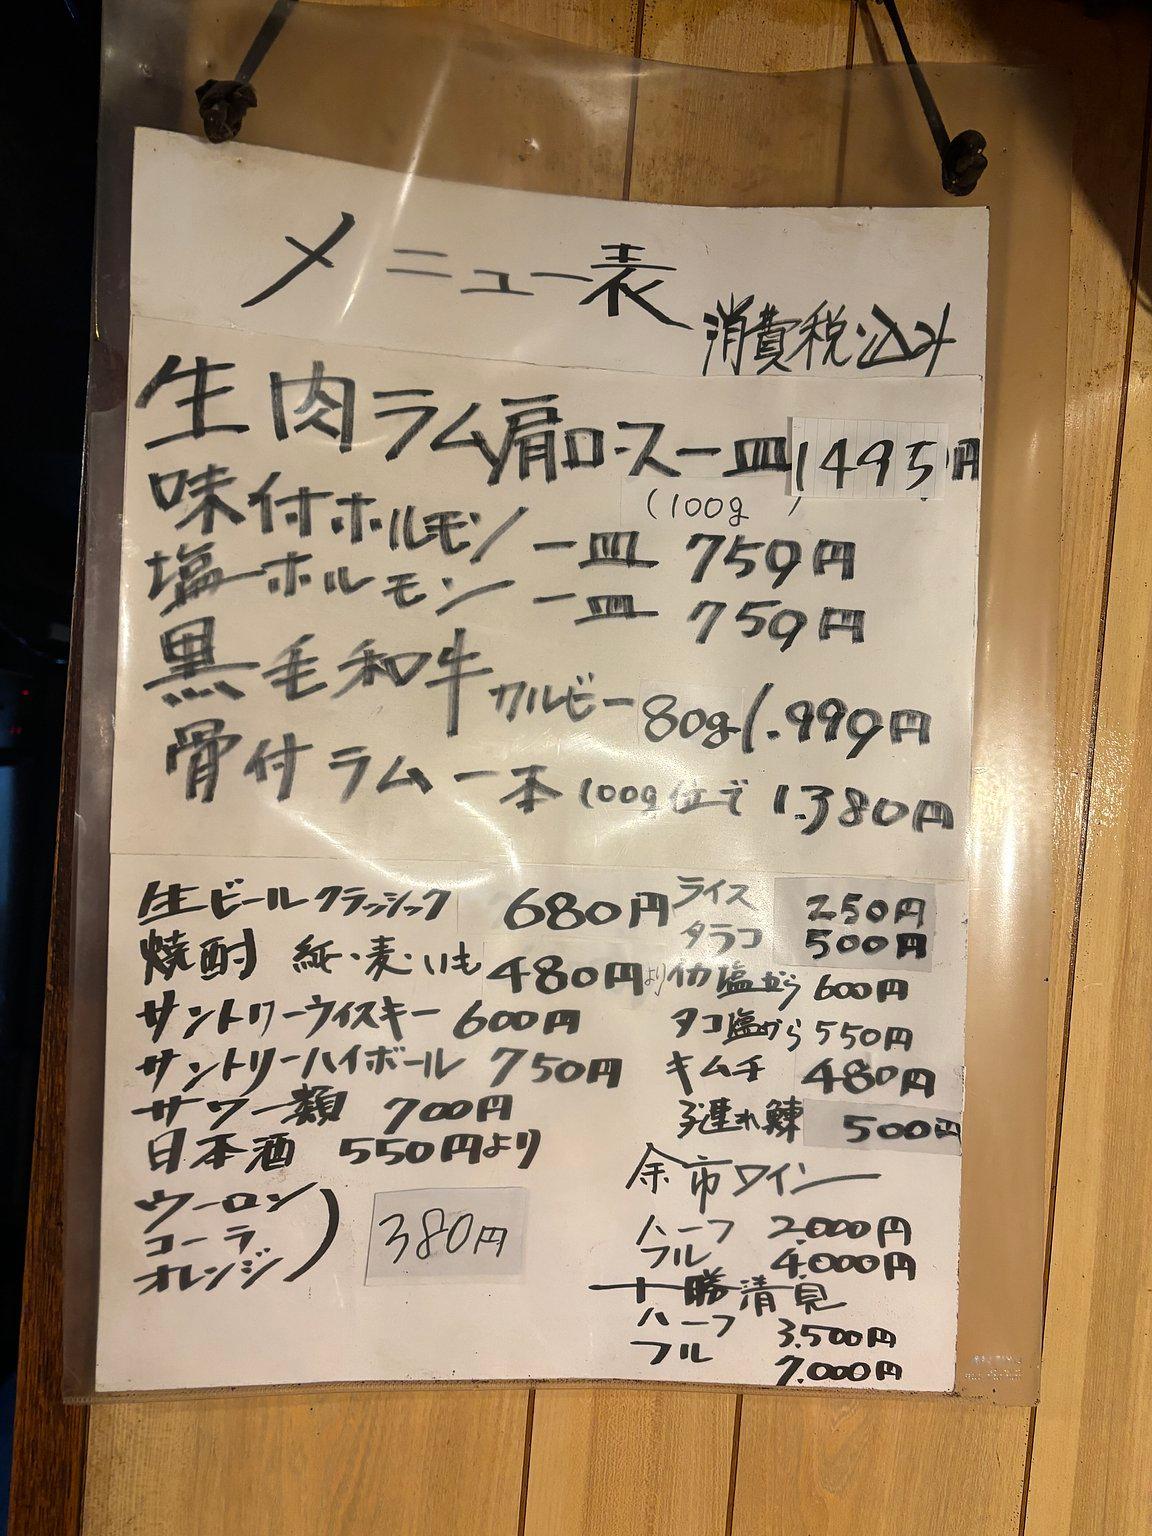 メニュー表
消費税込み
生肉ラム肩ロース一皿 1495円
(100g )
味付ホルモン 一皿 759円
塩ホルモン 一皿 759円
黒毛和牛カルビー 80g 1.990円
骨付ラム一本 100g位で 1.380円
生ビールクラッシック 680円
焼酎 紙・麦・いも 480円より
サントリーウイスキー 600円
サントリーハイボール 750円
サワー類 700円
日本酒 550円より
ウーロン
コーラ
オレンジ
) 380円
ライス 250円
タラコ 500円
イカ塩から 600円
タコ塩から 550円
キムチ 480円
500円
余市ワイン
ハーフ 2.000円
フル 4.000円
十勝清見
ハーフ 3.500円
フル 7.000円